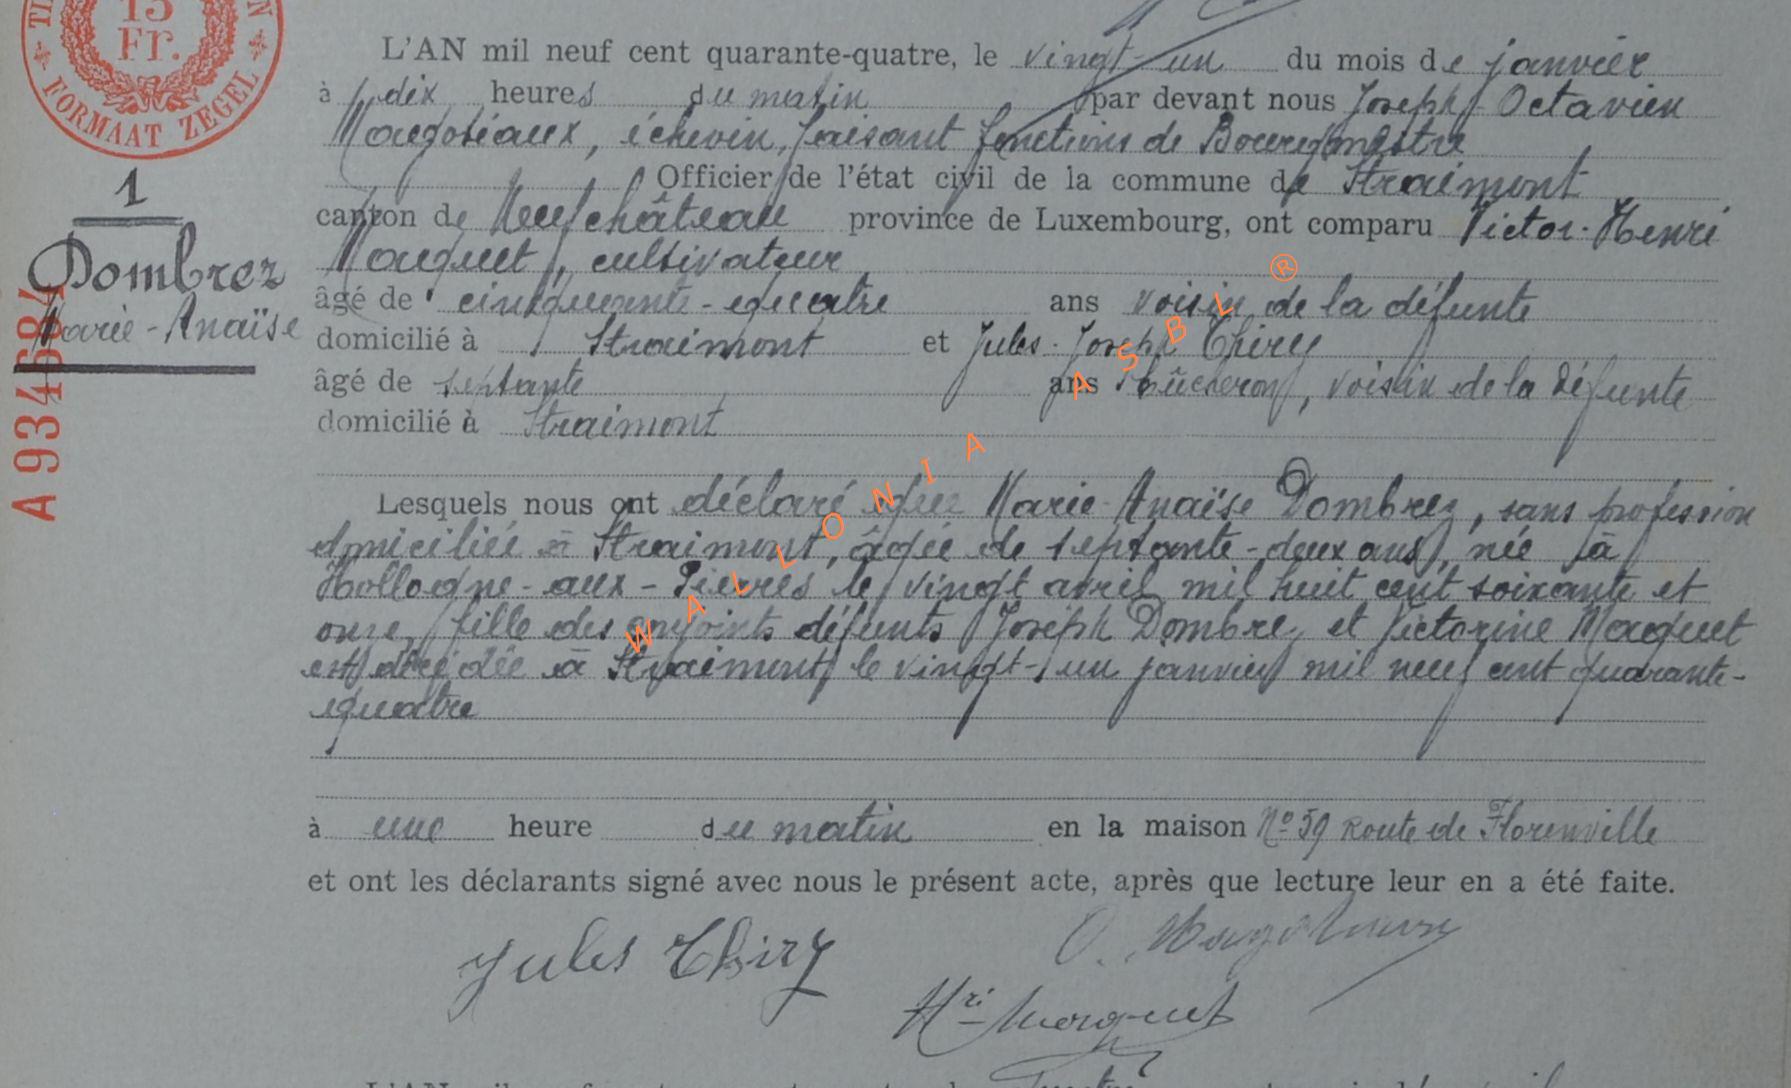 15
Fr.
FORMAAT ZEGEL
1
Dombrez
Marie-Anaïse
A 934684
L'AN mil neuf cent quarante-quatre, le vingt-un du mois de janvier
à dix heures du matin par devant nous Joseph Octavien
Maugotiaux, échevin, faisant fonctions de Bourgmestre
Officier de l'état civil de la commune de Straimont
canton de Neufchâteau province de Luxembourg, ont comparu Victor-Henri
Maquet, cultivateur
âgé de cinquante-quatre ans voisin de la défunte
domicilié à Straimont et Jules-Joseph Thiry
âgé de septante ans bûcheron, voisin de la défunte
domicilié à Straimont
Lesquels nous ont déclaré que Marie-Anaïse Dombrez, sans profession
domiciliée à Straimont, âgée de septante-deux ans, née à
Hollogne-aux-Pierres le vingt avril mil huit cent soixante et
onze, fille des conjoints défunts Joseph Dombrez et Victorine Maquet
est décédée à Straimont le vingt-un janvier mil neuf cent quarante-
quatre
à une heure du matin en la maison N° 59 Route de Florenville
et ont les déclarants signé avec nous le présent acte, après que lecture leur en a été faite.
Jules Thiry
Hri Maquet
WALLONIA ASBL ®